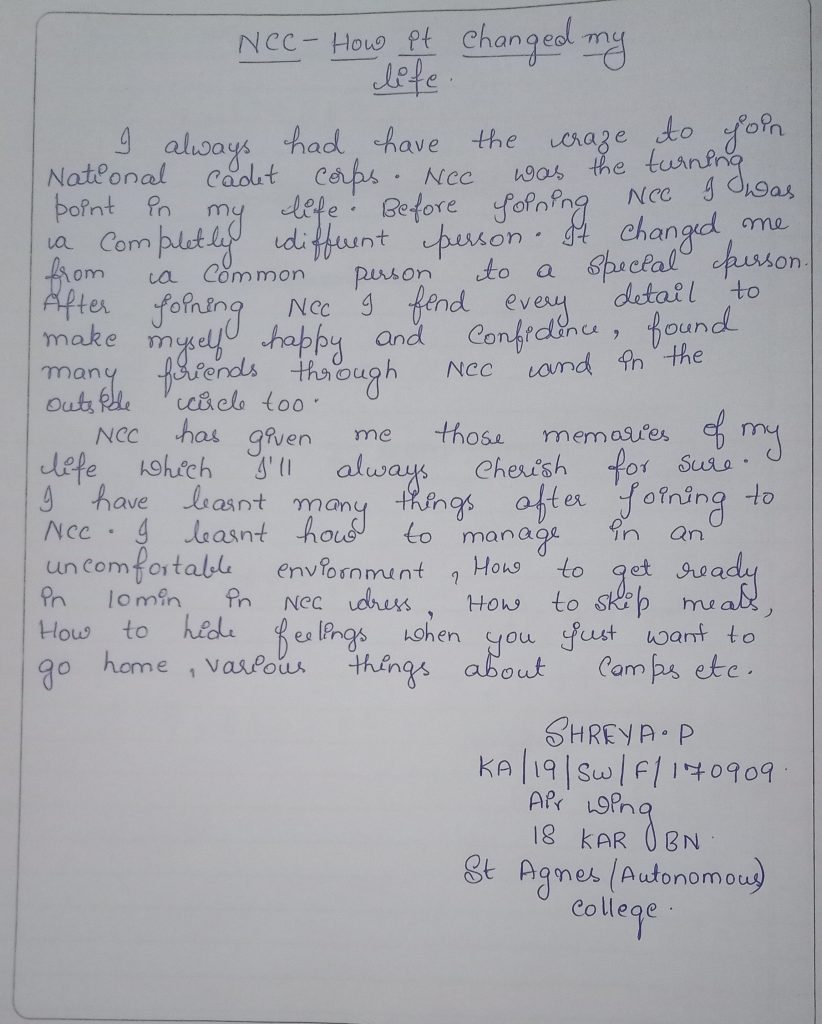 NCC - How it changed my
life.
I always had have the craze to join
National Cadet Corps. NCC was the turning
point in my life. Before joining NCC I was
a completly different person. It changed me
from a common person to a special person.
After joining NCC I find every detail to
make myself happy and confidence, found
many friends through NCC and in the
outside circle too.
NCC has given me those memories of my
life which I'll always cherish for sure.
I have learnt many things after joining to
NCC. I learnt how to manage in an
uncomfortable enviornment, How to get ready
in 10min in NCC dress, How to skip meals,
How to hide feelings when you just want to
go home, various things about Camps etc.
SHREYA. P
KA/19/SW/F/170909.
Air wing
18 KAR BN
St Agnes (Autonomous)
college.